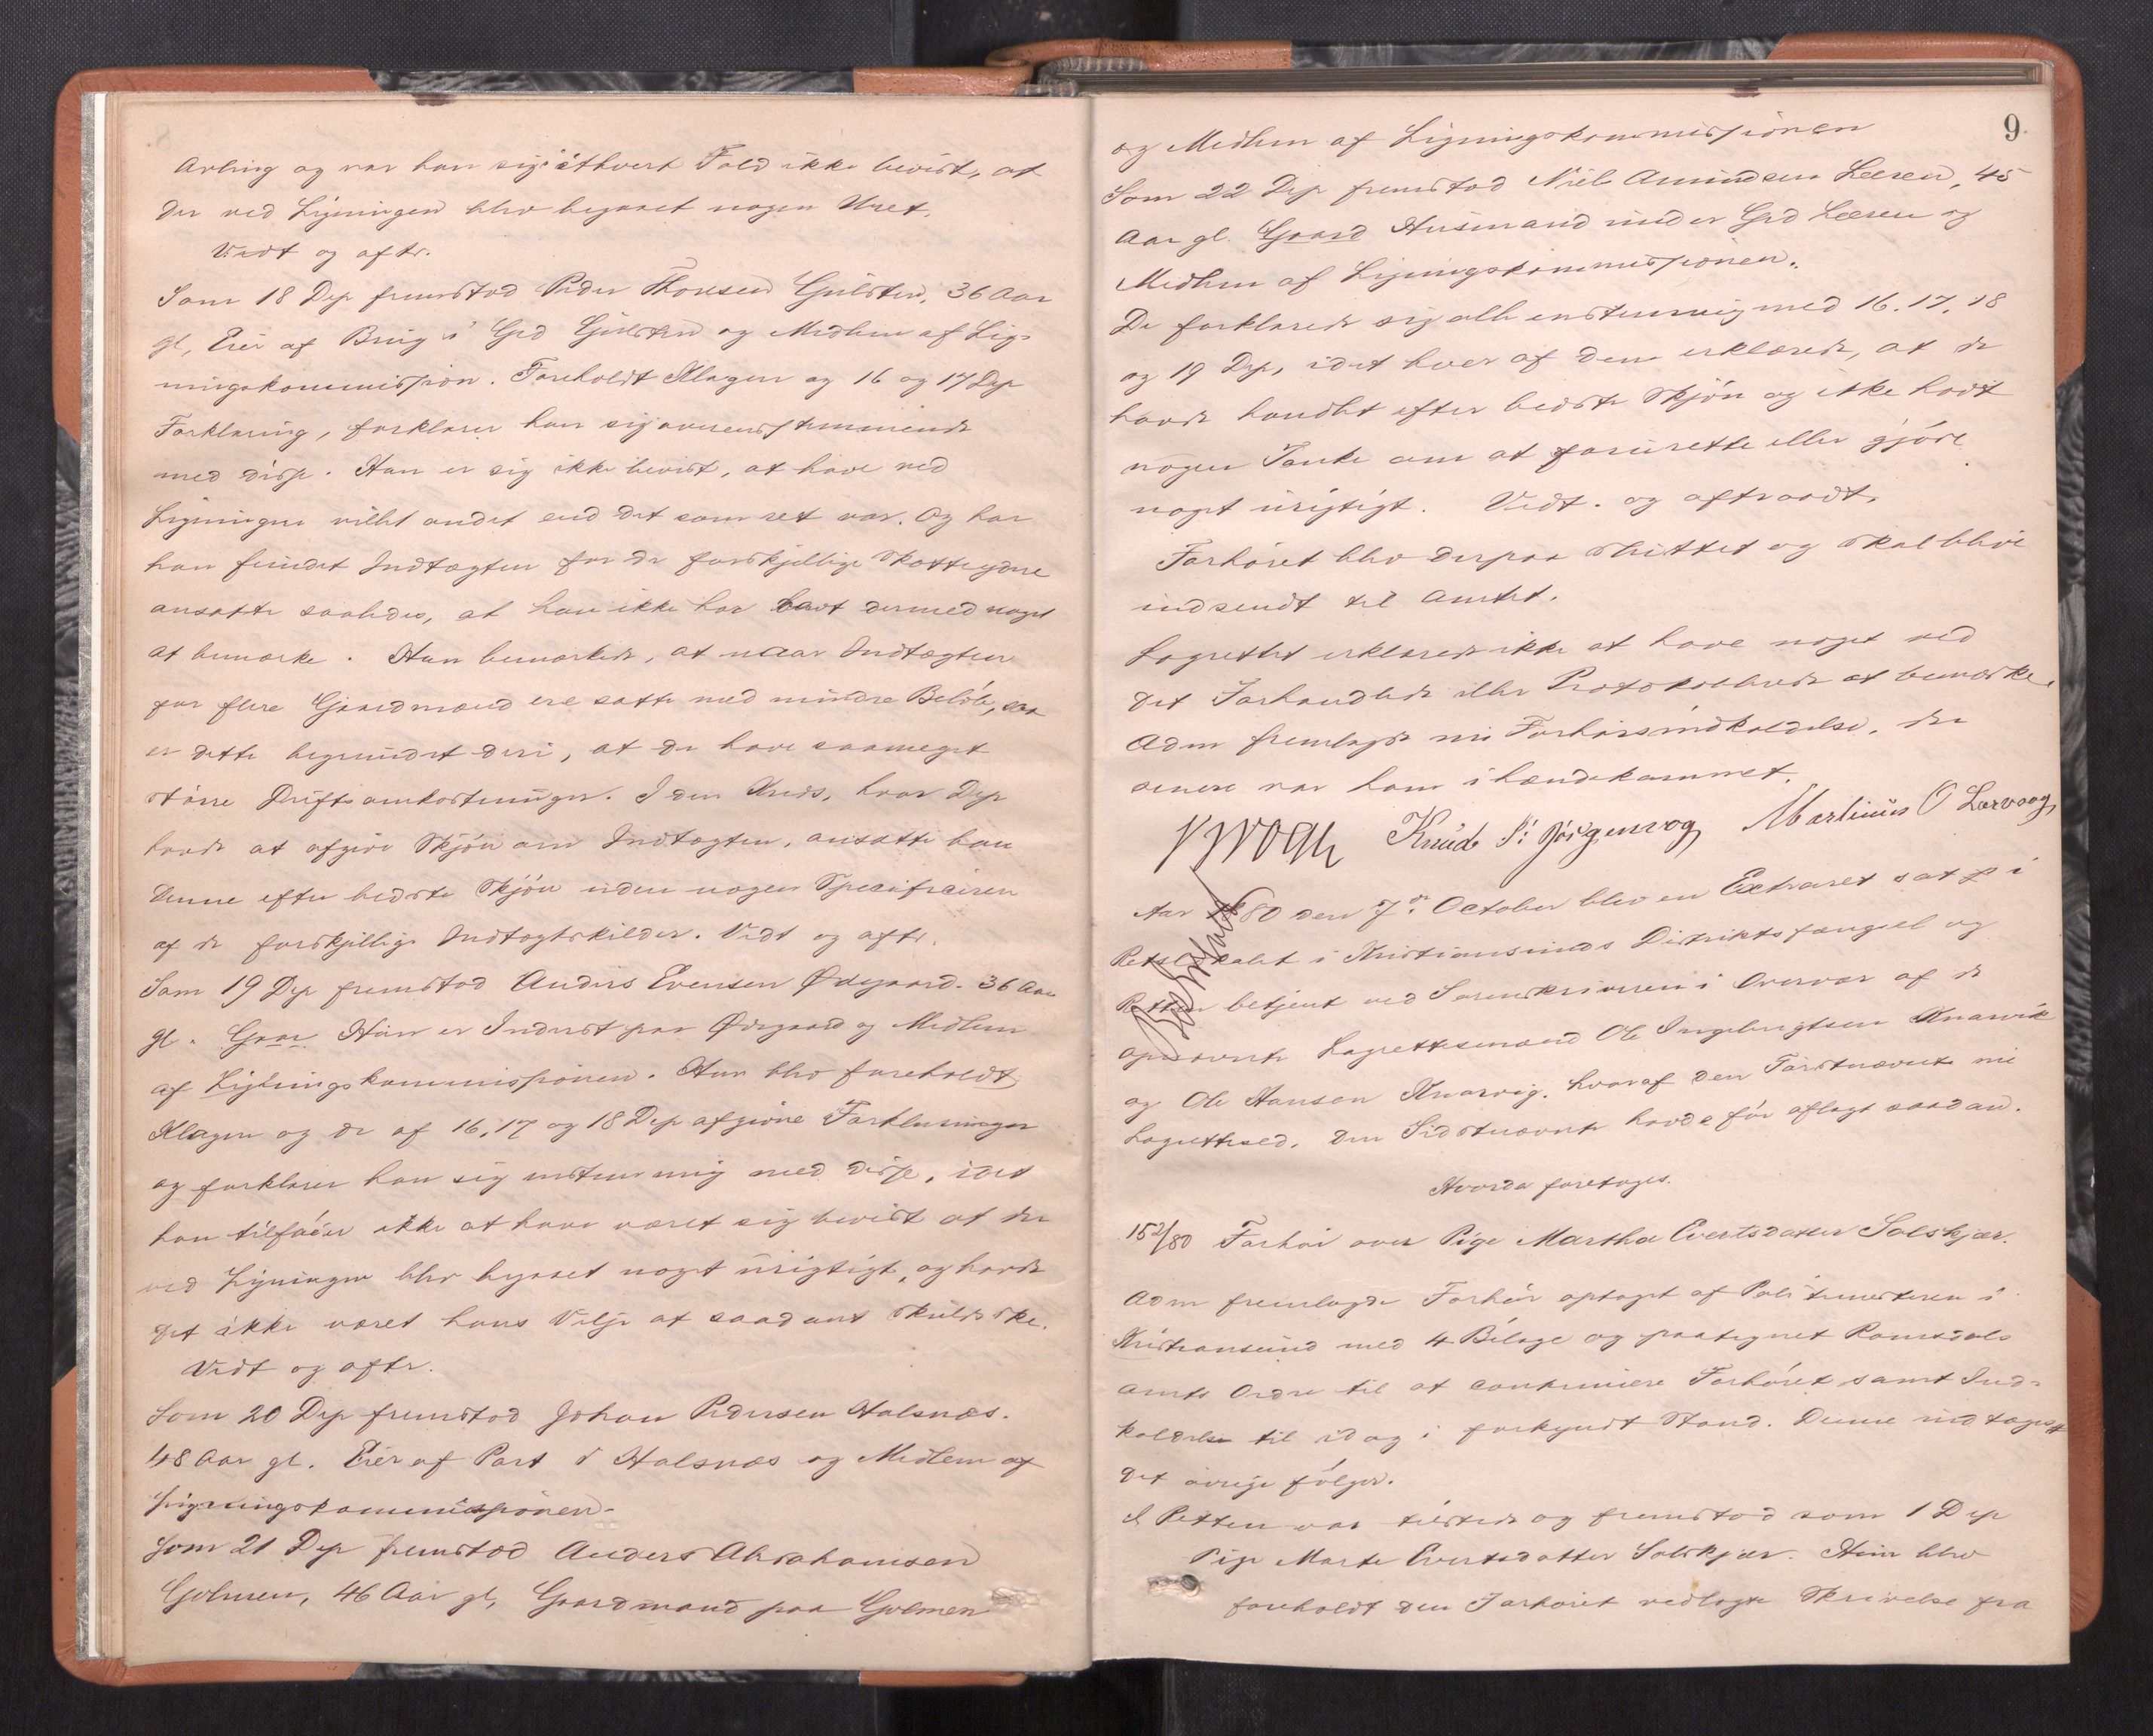 Avling og var han sig i ethvert Fald ikke bevist, at
der ved Ligningen blev begaaet nogen Uret.
Vedt og aftr.
Som 18 Dep fremstod Peder Thoresen Gulsten, 36 Aar
gl, Eier af Brug i Grd Gulsten og Medlem af Lig-
ningskommission. Foreholdt Klagen og 16 og 17 Dep
Forklaring, forklarer han sig overensstemmende
med disse. Han er sig ikke bevist, at have ved
Ligningen villet andet end det som ret var. Og har
han fundet Indtægten for de forskjellige Skatteydere
ansatte saaledes, at han ikke har havt dermed noget
at bemærke. Han bemærkede, at naar Indtægten
for flere Gaardmænd ere satte med mindre Beløb, saa
er dette begrundet deri, at de have saameget
større Driftsomkostninger. I den Kreds, hvor Dep
havde at afgive Skjøn om Indtægten, ansatte han
denne efter bedste Skjøn uden nogen Specificiren
af de forskjellige Indtægtskilder. Vedt og aftr.
Som 19 Dep fremstod Anders Evensen Ødegaard. 36 Aar
gl. Gaar Han er Inderst paa Ødegaard og Medlem
af Ligningskommissionen. Han blev foreholdt
Klagen og de af 16, 17 og 18 Dep afgivne Forklaringer
og forklarer han sig enstemmig med disse, idet
han tilføier ikke at have været sig bevist at der
ved Ligningen blev begaaet noget urigtigt, og havde
det ikke været hans Vilje at saadant skulde ske.
Vedt og aftr.
Som 20 Dep fremstod Johan Pedersen Halsnæs.
48 Aar gl. Eier af Part i Halsnæs og Medlem af
Ligningskommissionen.
Som 21 Dep fremstod Anders Abrahamsen
Golmen, 46 Aar gl, Gaardmand paa Golmen
9
og Medlem af Ligningskommissionen
Som 22 Dep fremstod Niels Amundsen Leeren, 45
Aar gl. Gaard Husmand under Grd Leeren og
Medlem af Ligningskommissionen.
De forklarede sig alle enstemmig med 16. 17. 18
og 19 Dep, idet hver af dem erklærede, at de
havde handlet efter bedste Skjøn og ikke havt
nogen Tanke om at forurette eller gjøre
noget urigtigt. Vedt. og aftraadt.
Forhøret blev derpaa sluttet og skal blive
indsendt til Amtet.
Lagrettet erklærede ikke at have noget ved
det Forhandlede eller Protokollerede at bemærke.
Adm fremlagde nu Forhørsindkaldelse, der
senere var ham ihændekommet.
Knud S: Jörgenvog Martinus O Lervaag
Aar 1880 den 7de October blev en Extraret sat i
Retslokalet i Kristiansunds Distriktsfængsel og
Retten betjent ved Sorenskriveren i Overvær af de
opnævnte Lagrettesmænd Ole Ingebrigtsen Knarvik
og Ole Hansen Knarvig. hvoraf den Førstnævnte nu
Lagrettesed, den Sidstnævnte havde før aflagt saadan.
Hvorda foretoges.
152/80 Forhør over Pige Martha Evertsdatter Solskjær.
Adm fremlagde Forhør optaget af Politimesteren i
Kristiansund med 4 Bilage og paategnet Romsdals
Amts Ordre til at continuere Forhøret samt Ind-
kaldelse til idag i forkyndt Stand. Denne indtages
det øvrige følger.
I Retten var tilstede og fremstod som 1 Dep
Pige Marte Evertsdatter Solskjær. Hun blev
foreholdt den Forhøret vedlagte Skrivelse fra